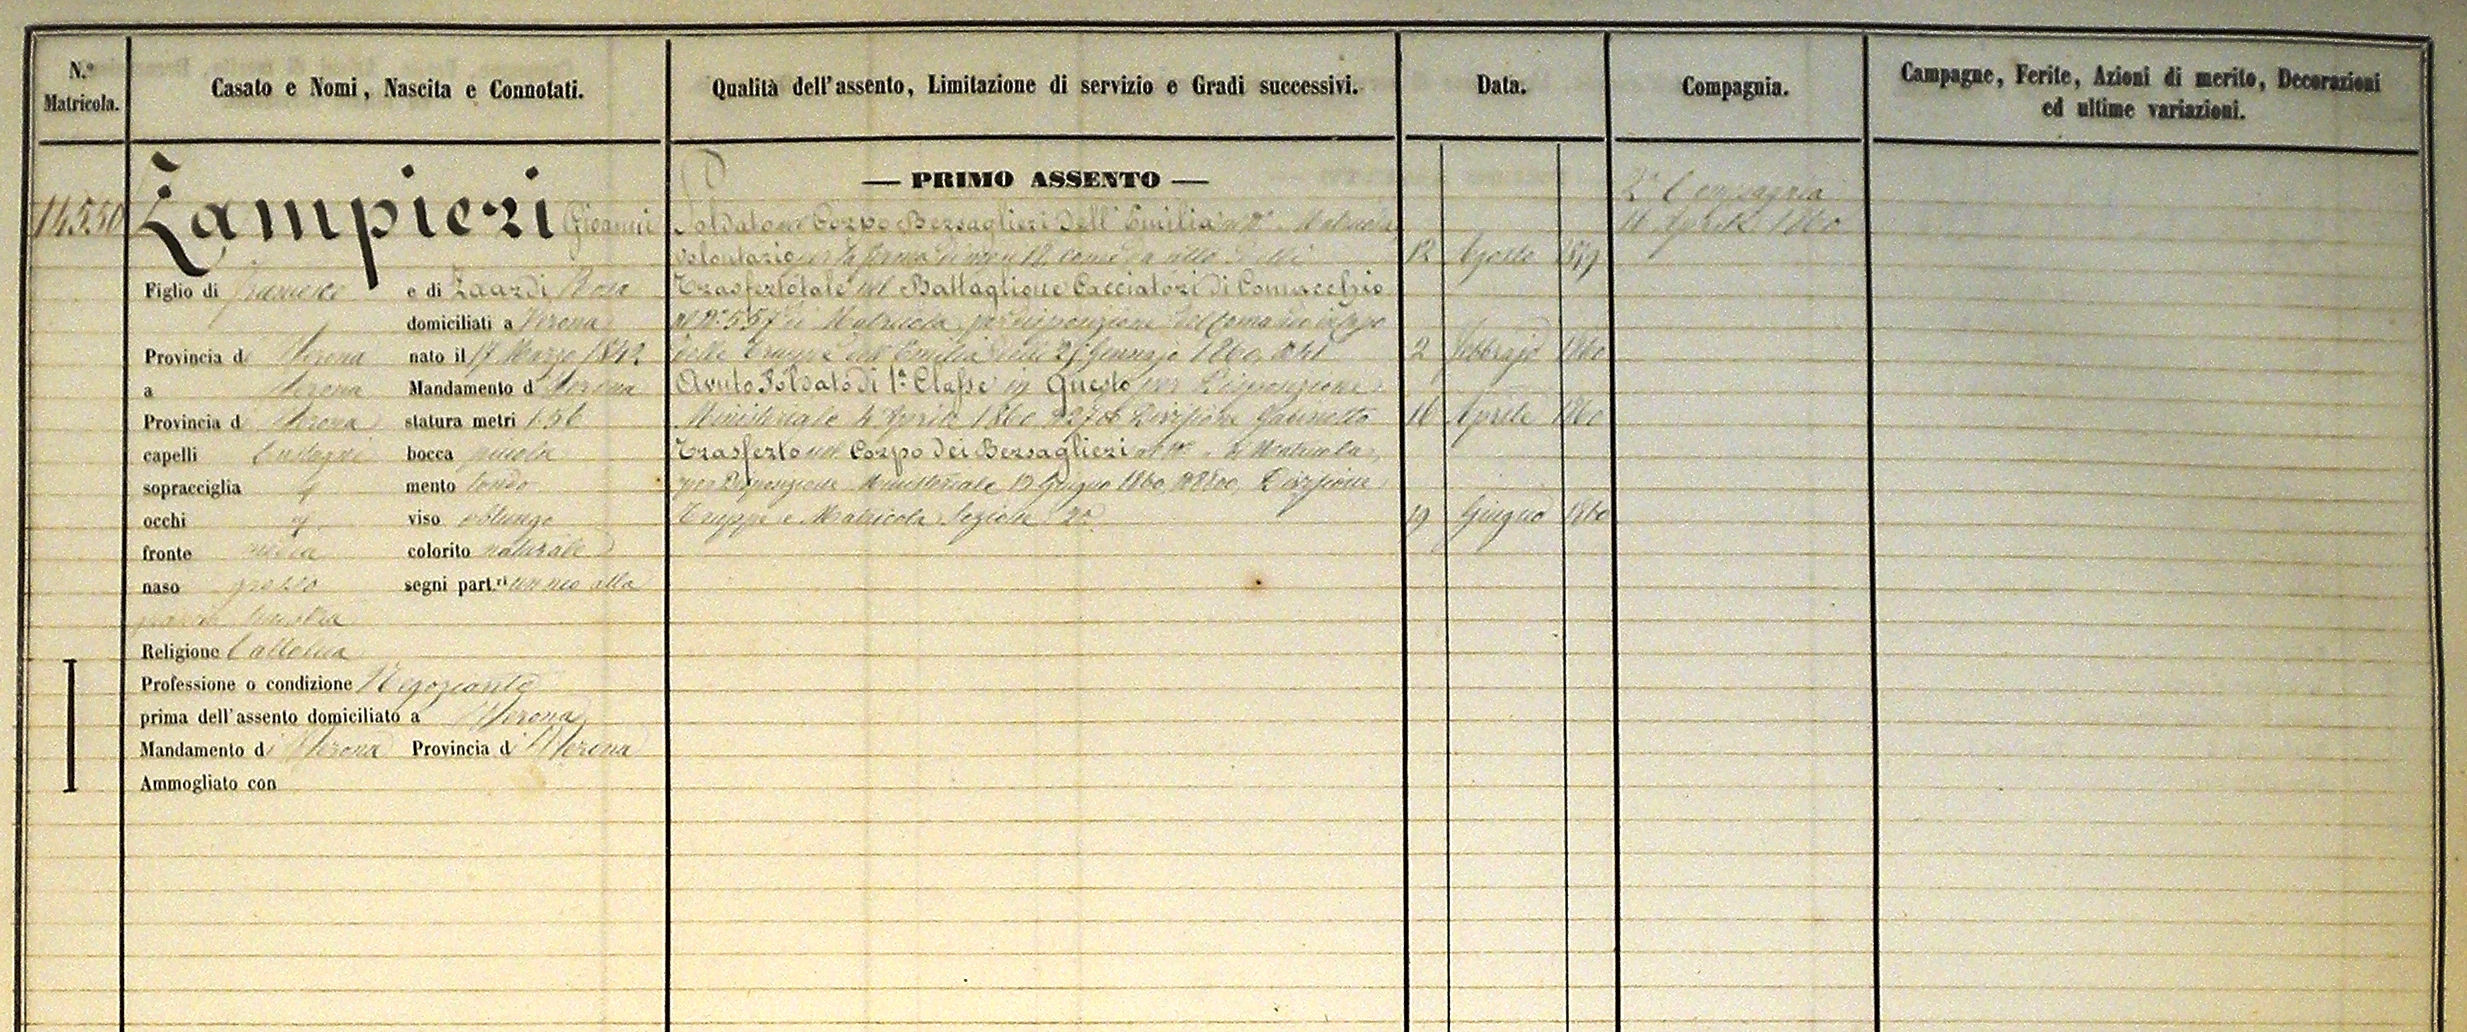 N.º Matricola.
Casato e Nomi, Nascita e Connotati.
Qualità dell'assento, Limitazione di servizio e Gradi successivi.
Data.
Compagnia.
Campagne, Ferite, Azioni di merito, Decorazioni
ed ultime variazioni.
14550
Zampieri Giovanni
Figlio di Francesco e di Zaardi Rosa
domiciliati a Verona
Provincia di Verona nato il 17 Marzo 1842
a Verona Mandamento di Verona
Provincia di Verona statura metri 1.56
capelli Castagni bocca piccola
sopracciglia mento tondo
occhi viso oblungo
fronte media colorito naturale
naso grosso segni part.ri un neo alla
sinistra
Religione Cattolica
Professione o condizione Negoziante
prima dell'assento domiciliato a Verona
Mandamento di Verona Provincia di Verona
Ammogliato con
— PRIMO ASSENTO —
Soldato nel Corpo Bersaglieri dell'Emilia al Nº Matricola
volontario per la ferma di mesi 18 come da atto delli 12 Agosto 1859
Trasferto tale nel Battaglione Cacciatori di Comacchio
al Nº 557 di Matricola per disposizione del Comando in Capo
delle Truppe dell'Emilia delli 28 Gennajo 1860, 2 Febbrajo 1860
Avuto Soldato di 1ª Classe in Questo per Disposizione
Ministeriale 4 Aprile 1860 Divisione Gabinetto 16 Aprile 1860
Trasferto nel Corpo dei Bersaglieri al Nº di Matricola,
per Disposizione Ministeriale 13 Giugno 1860, Divisione
Truppe e Matricola Sezione 2ª 19 Giugno 1860
2ª Compagnia
16 Aprile 1860